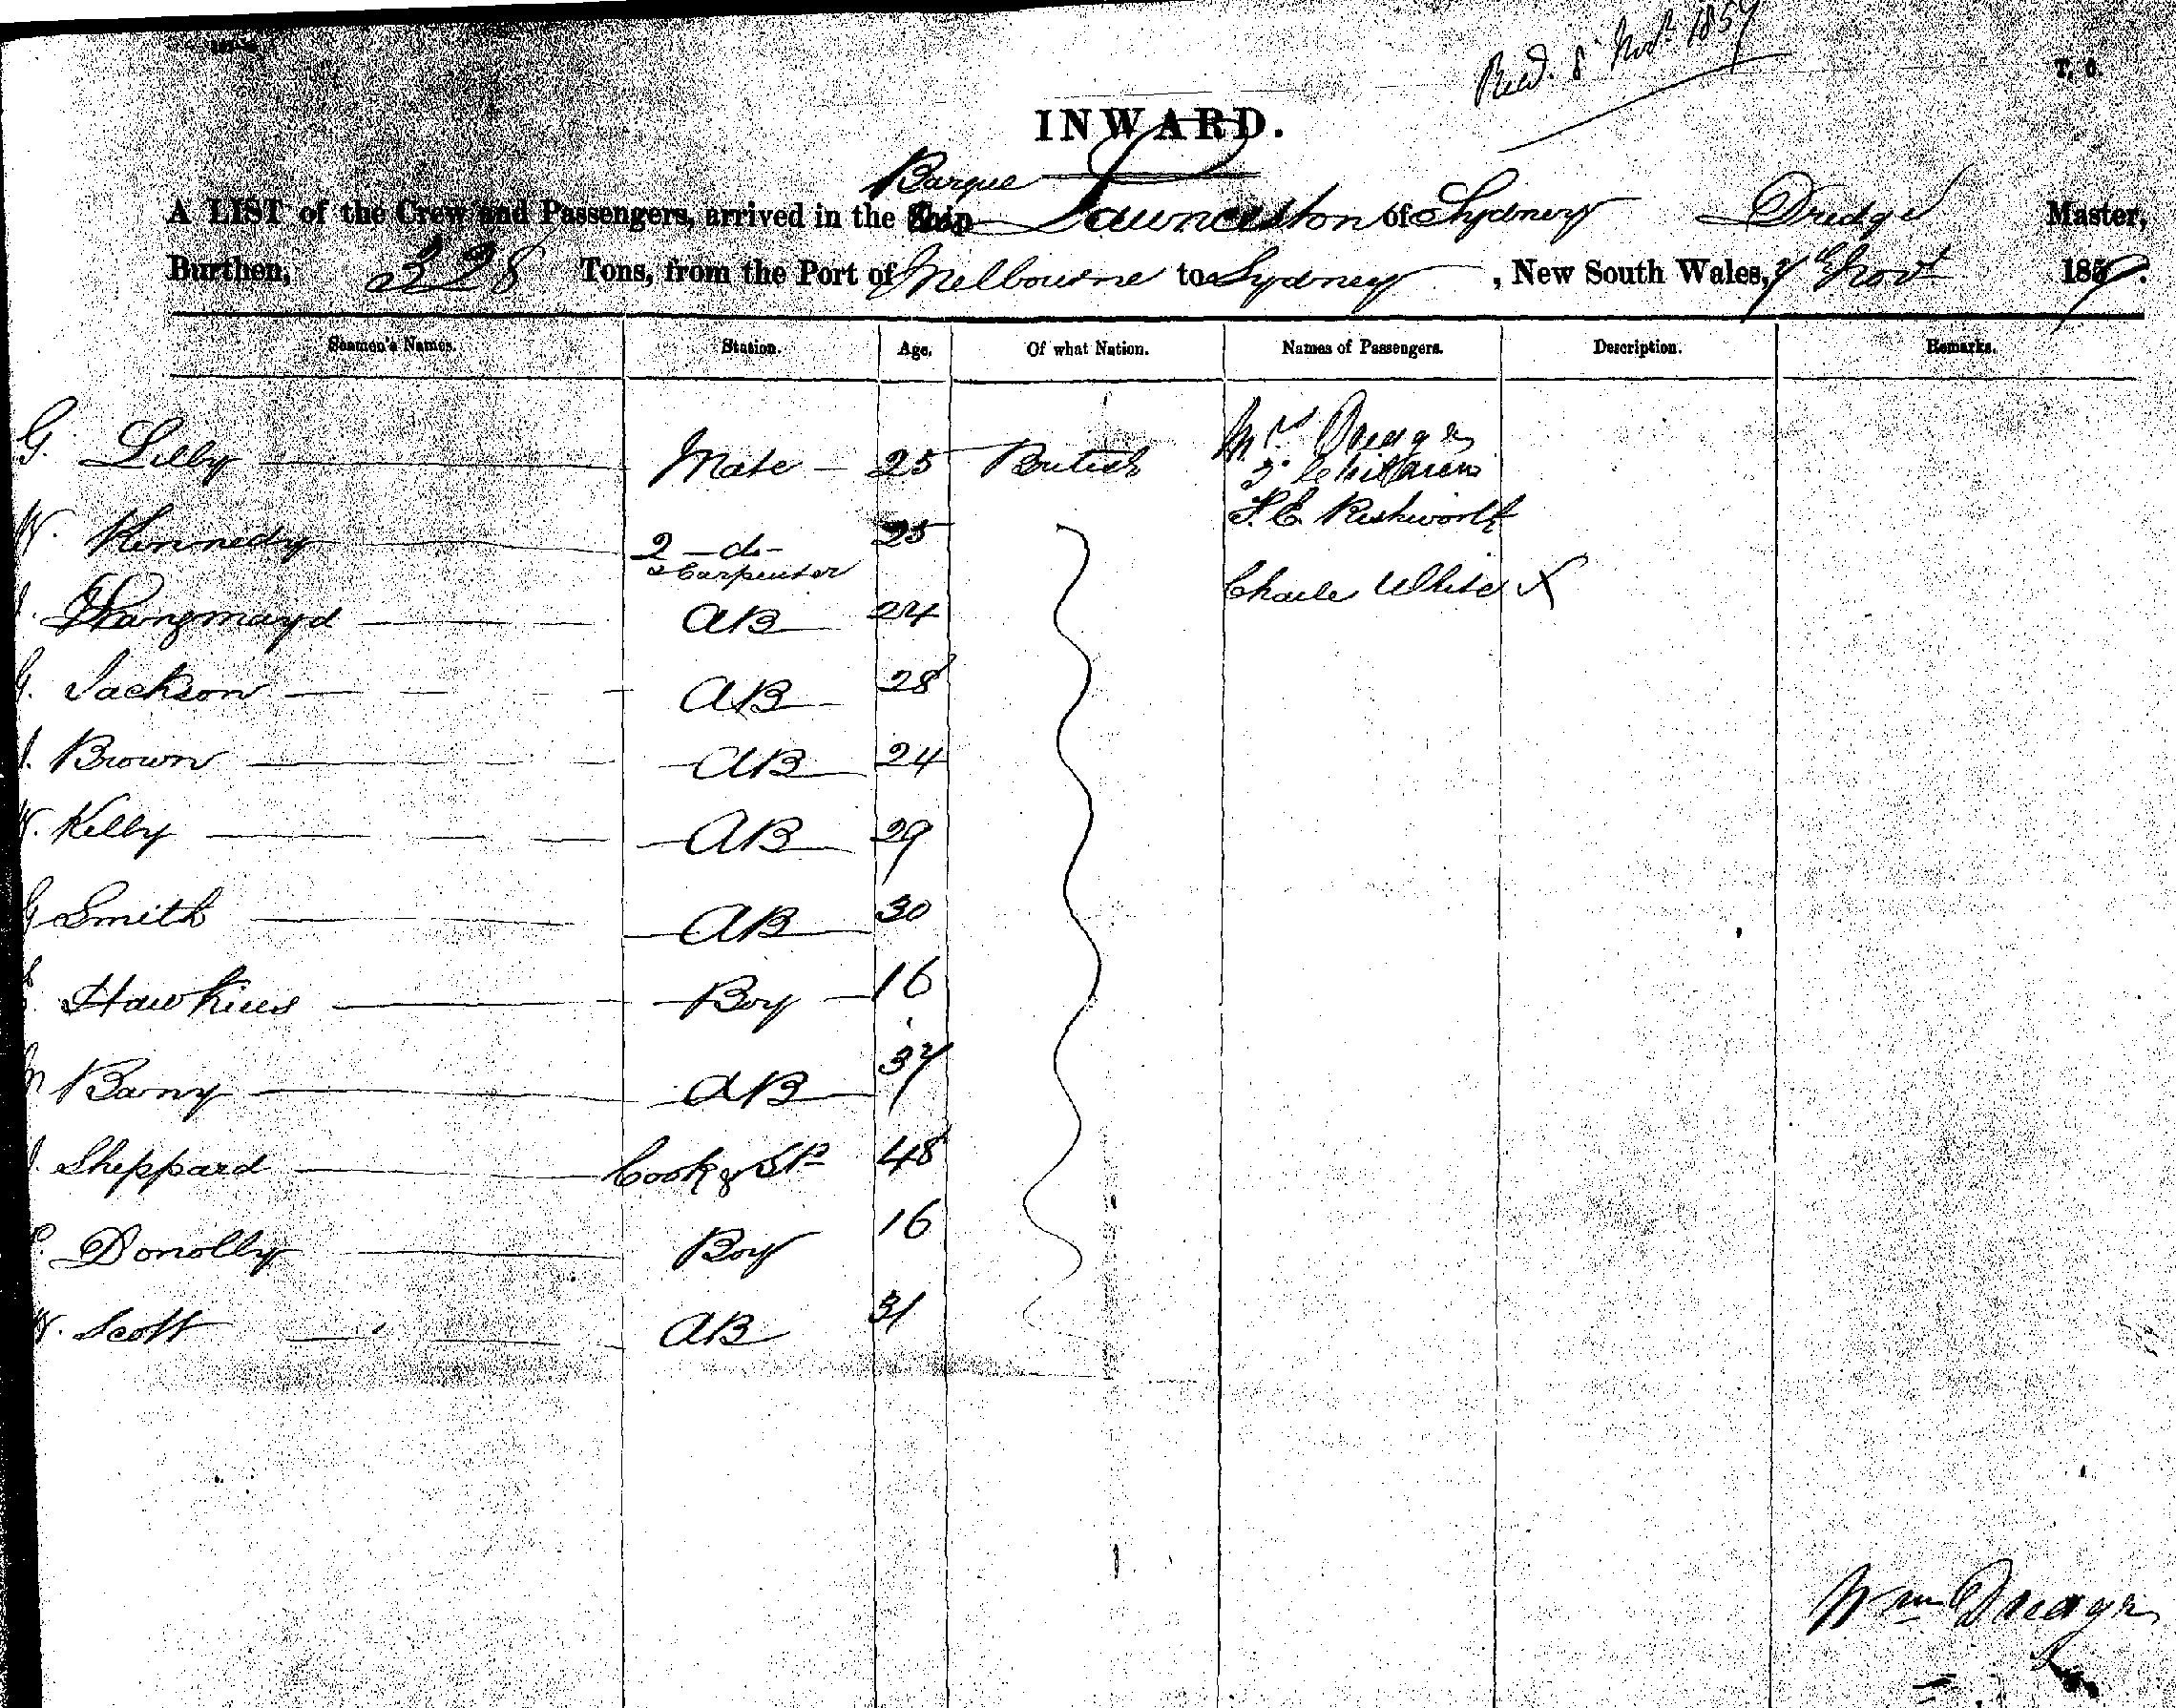 Recd. 8 Novr 1857
T. 6.
INWARD.
Barque
A LIST of the Crew and Passengers, arrived in the Ship Launceston of Sydney Dredge Master,
Burthen, 328 Tons, from the Port of Melbourne to Sydney, New South Wales, 7th Novr 1857.
Seamen's Names. Station. Age. Of what Nation. Names of Passengers. Description. Remarks.
G. Lilly Mate 25 British Mrs Dredge
2 Children
W. Kennedy 2 - do - 25 Rishworth
& Carpenter
Langmayd AB 24 Charle White X
G. Jackson AB 28
J. Brown AB 24
W. Kelly AB 29
G Smith AB 30
Hawkins Boy 16
M Barry AB 37
J. Sheppard Cook & Std 48
P. Donolly Boy 16
W. Scott AB 31
Wm Dredge